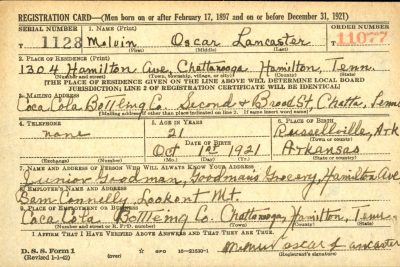 REGISTRATION CARD—(Men born on or after February 17, 1897 and on or before December 31, 1921)
SERIAL NUMBER 1. NAME (Print) ORDER NUMBER
T 1128 Melvin Oscar Lancaster T 11077
(First) (Middle) (Last)
2. PLACE OF RESIDENCE (Print)
1304 Hamilton Ave, Chattanooga Hamilton, Tenn.
(Number and street) (Town, township, village, or city) (County) (State)
[THE PLACE OF RESIDENCE GIVEN ON THE LINE ABOVE WILL DETERMINE LOCAL BOARD
JURISDICTION; LINE 2 OF REGISTRATION CERTIFICATE WILL BE IDENTICAL]
3. MAILING ADDRESS
Coca Cola Bottleing Co. Second & Broad St, Chatta, Tenn
[Mailing address if other than place indicated on line 2. If same insert word same]
4. TELEPHONE 5. AGE IN YEARS 6. PLACE OF BIRTH
none 21 Russellville, Ark
DATE OF BIRTH (Town or county)
Oct 1st 1921 Arkansas
(Exchange) (Number) (Mo.) (Day) (Yr.) (State or country)
7. NAME AND ADDRESS OF PERSON WHO WILL ALWAYS KNOW YOUR ADDRESS
Junior Goodman, Goodman's Grocery, Hamilton Ave
8. EMPLOYER'S NAME AND ADDRESS
Connelly, Lookout Mt.
Coca Cola Bottleing Co. Chattanooga, Hamilton, Tenn
9. PLACE OF EMPLOYMENT OR BUSINESS
(Number and street or R. F. D. number) (Town) (County) (State)
I AFFIRM THAT I HAVE VERIFIED ABOVE ANSWERS AND THAT THEY ARE TRUE.
D. S. S. Form 1
(Revised 1-1-42) (over) Melvin oscar Lancaster
(Registrant's signature)